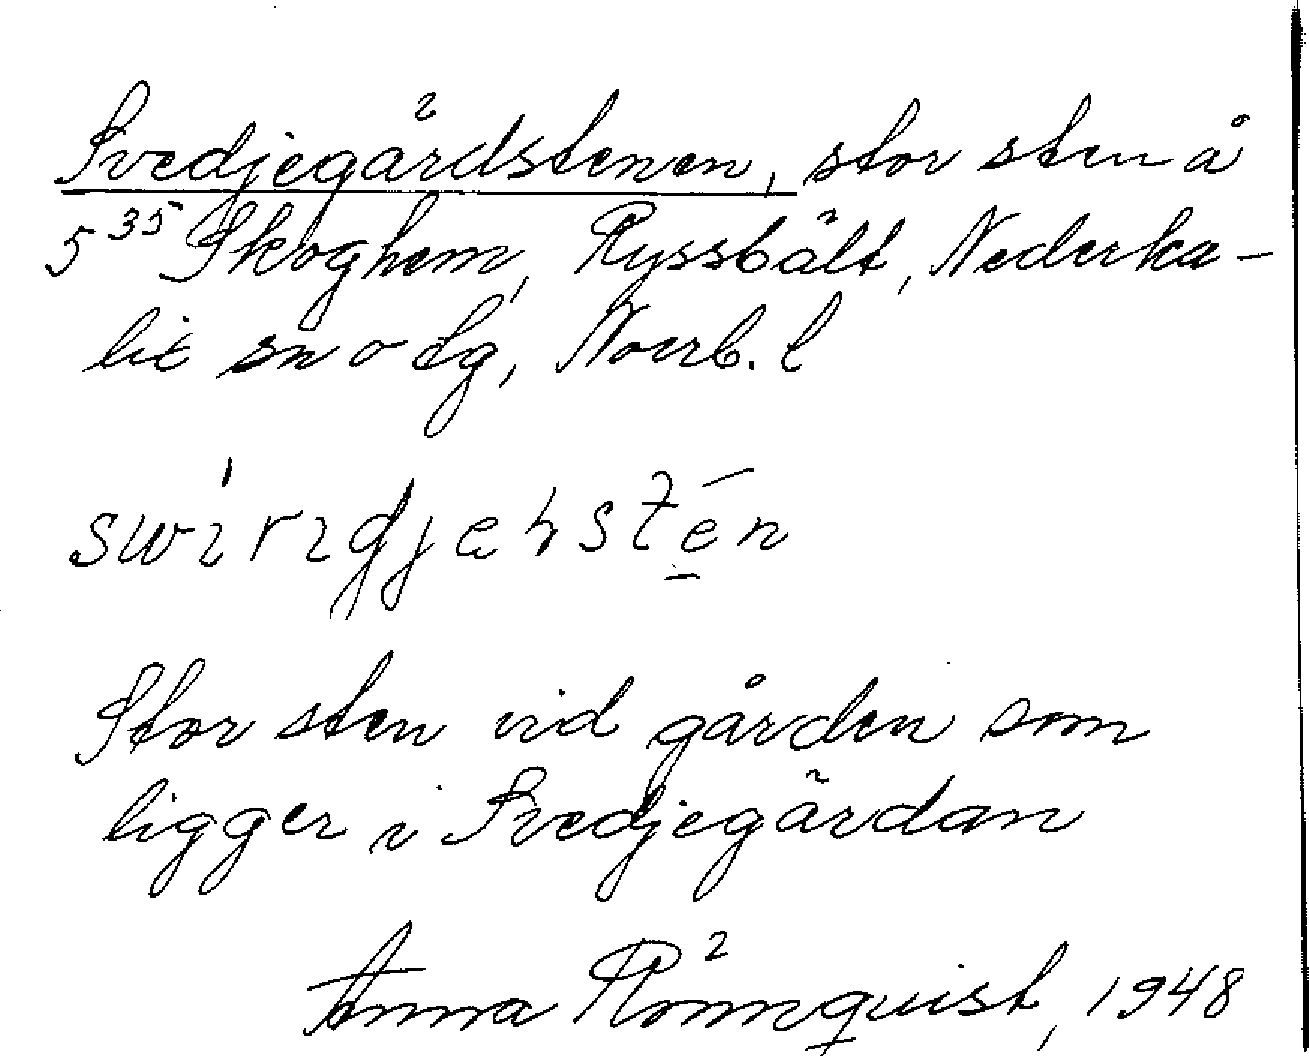 Svedjegärdstenen, stor sten å
5³⁵ Skoghem, Ryssbält, Nederka-
lix sn o tg, Norrb. l
Stor sten vid gården som
ligger i Svedjegärdan
Anna Rönnquist, 1948